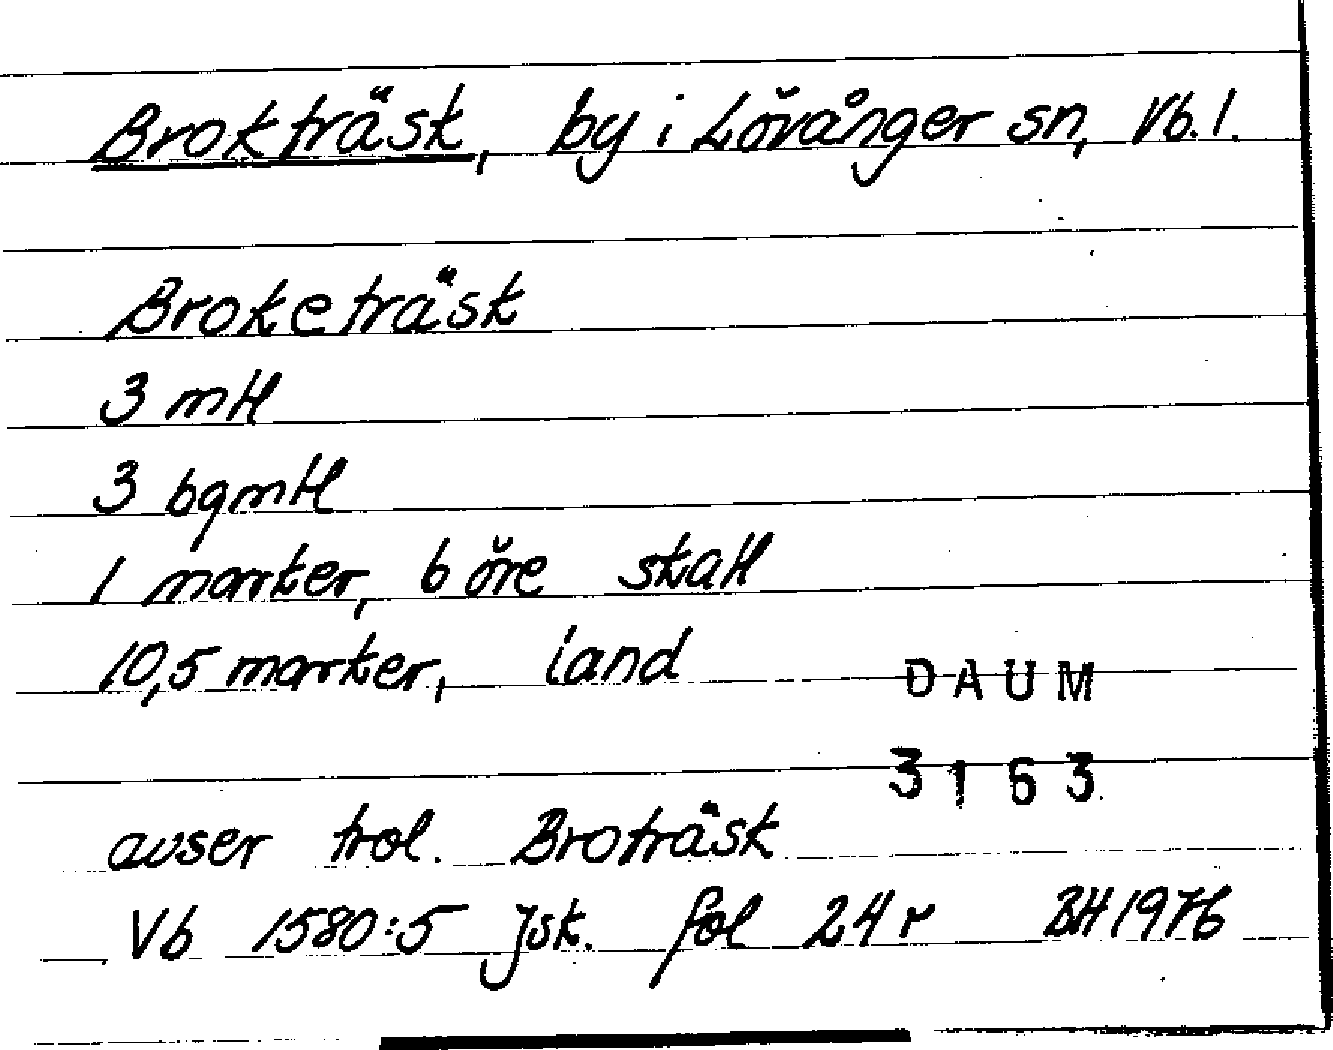 Brokträsk, by i Lövånger sn, Vb. l.
Broketräsk
3 mtl
3 bgmtl
1 marker, 6 öre skatt
10,5 marker, land
DAUM
3163
avser trol. Broträsk
Vb 1580:5 Jsk. fol 24 r BH 1976